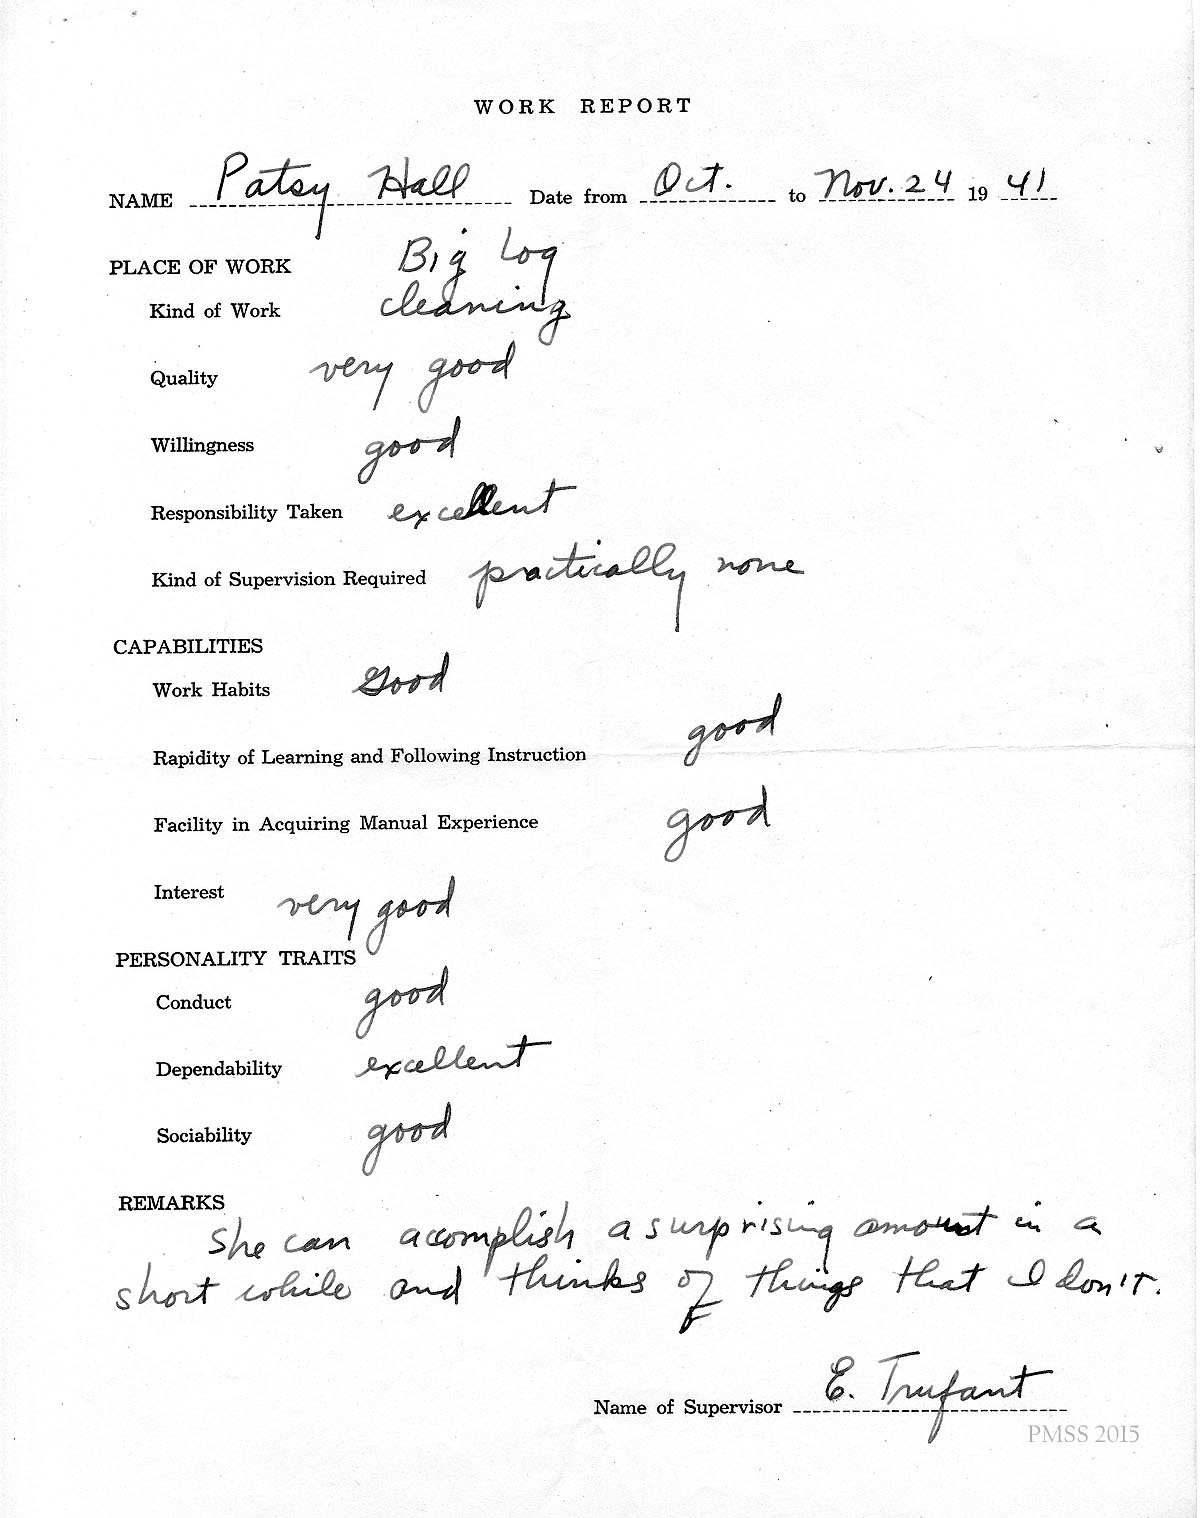 WORK REPORT
NAME Patsy Hall Date from Oct. to Nov. 24 19 41
PLACE OF WORK Big Log
Kind of Work cleaning
Quality very good
Willingness good
Responsibility Taken excellent
Kind of Supervision Required practically none
CAPABILITIES
Work Habits Good
Rapidity of Learning and Following Instruction good
Facility in Acquiring Manual Experience good
Interest very good
PERSONALITY TRAITS
Conduct good
Dependability excellent
Sociability good
REMARKS
She can accomplish a surprising amount in a
short while and thinks of things that I don't.
Name of Supervisor E. Trufant
PMSS 2015